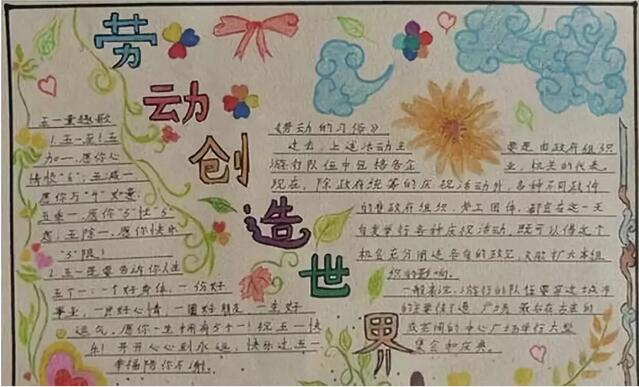 劳动创造世界
五一童趣歌
1.五一至!五
加一,愿你心
情快“6”;五减一
愿你与“4”如意
五乘一,愿你“5”忧“5”
虑;五除一,愿你快乐
“5”限!
2.五一是要告诉你人生
五个一:一个好身体,一份好
事业,一片好心情,一圈好朋友,一生好
运气,愿你一生拥有5个一!祝五一快
乐!开开心心到永远,快乐过五一
幸福陪你不谢。
《劳动的习俗》
过去,上述活动主要是由政府组织
游行队伍中包括各企业,机关的代表。
现在,除政府统筹的庆祝活动外,各种不同政件
的非政府组织,劳工团体,都会在这一天
自发举行各种庆祝活动,既可以借这个
机会充分阐述各自的政见,又能扩大本组
织的影响。
一般来说,游行的队伍要穿过城市
的主要街道,广场,最后在古老的
或空阔的中心广场举行大型
集会和庆典。